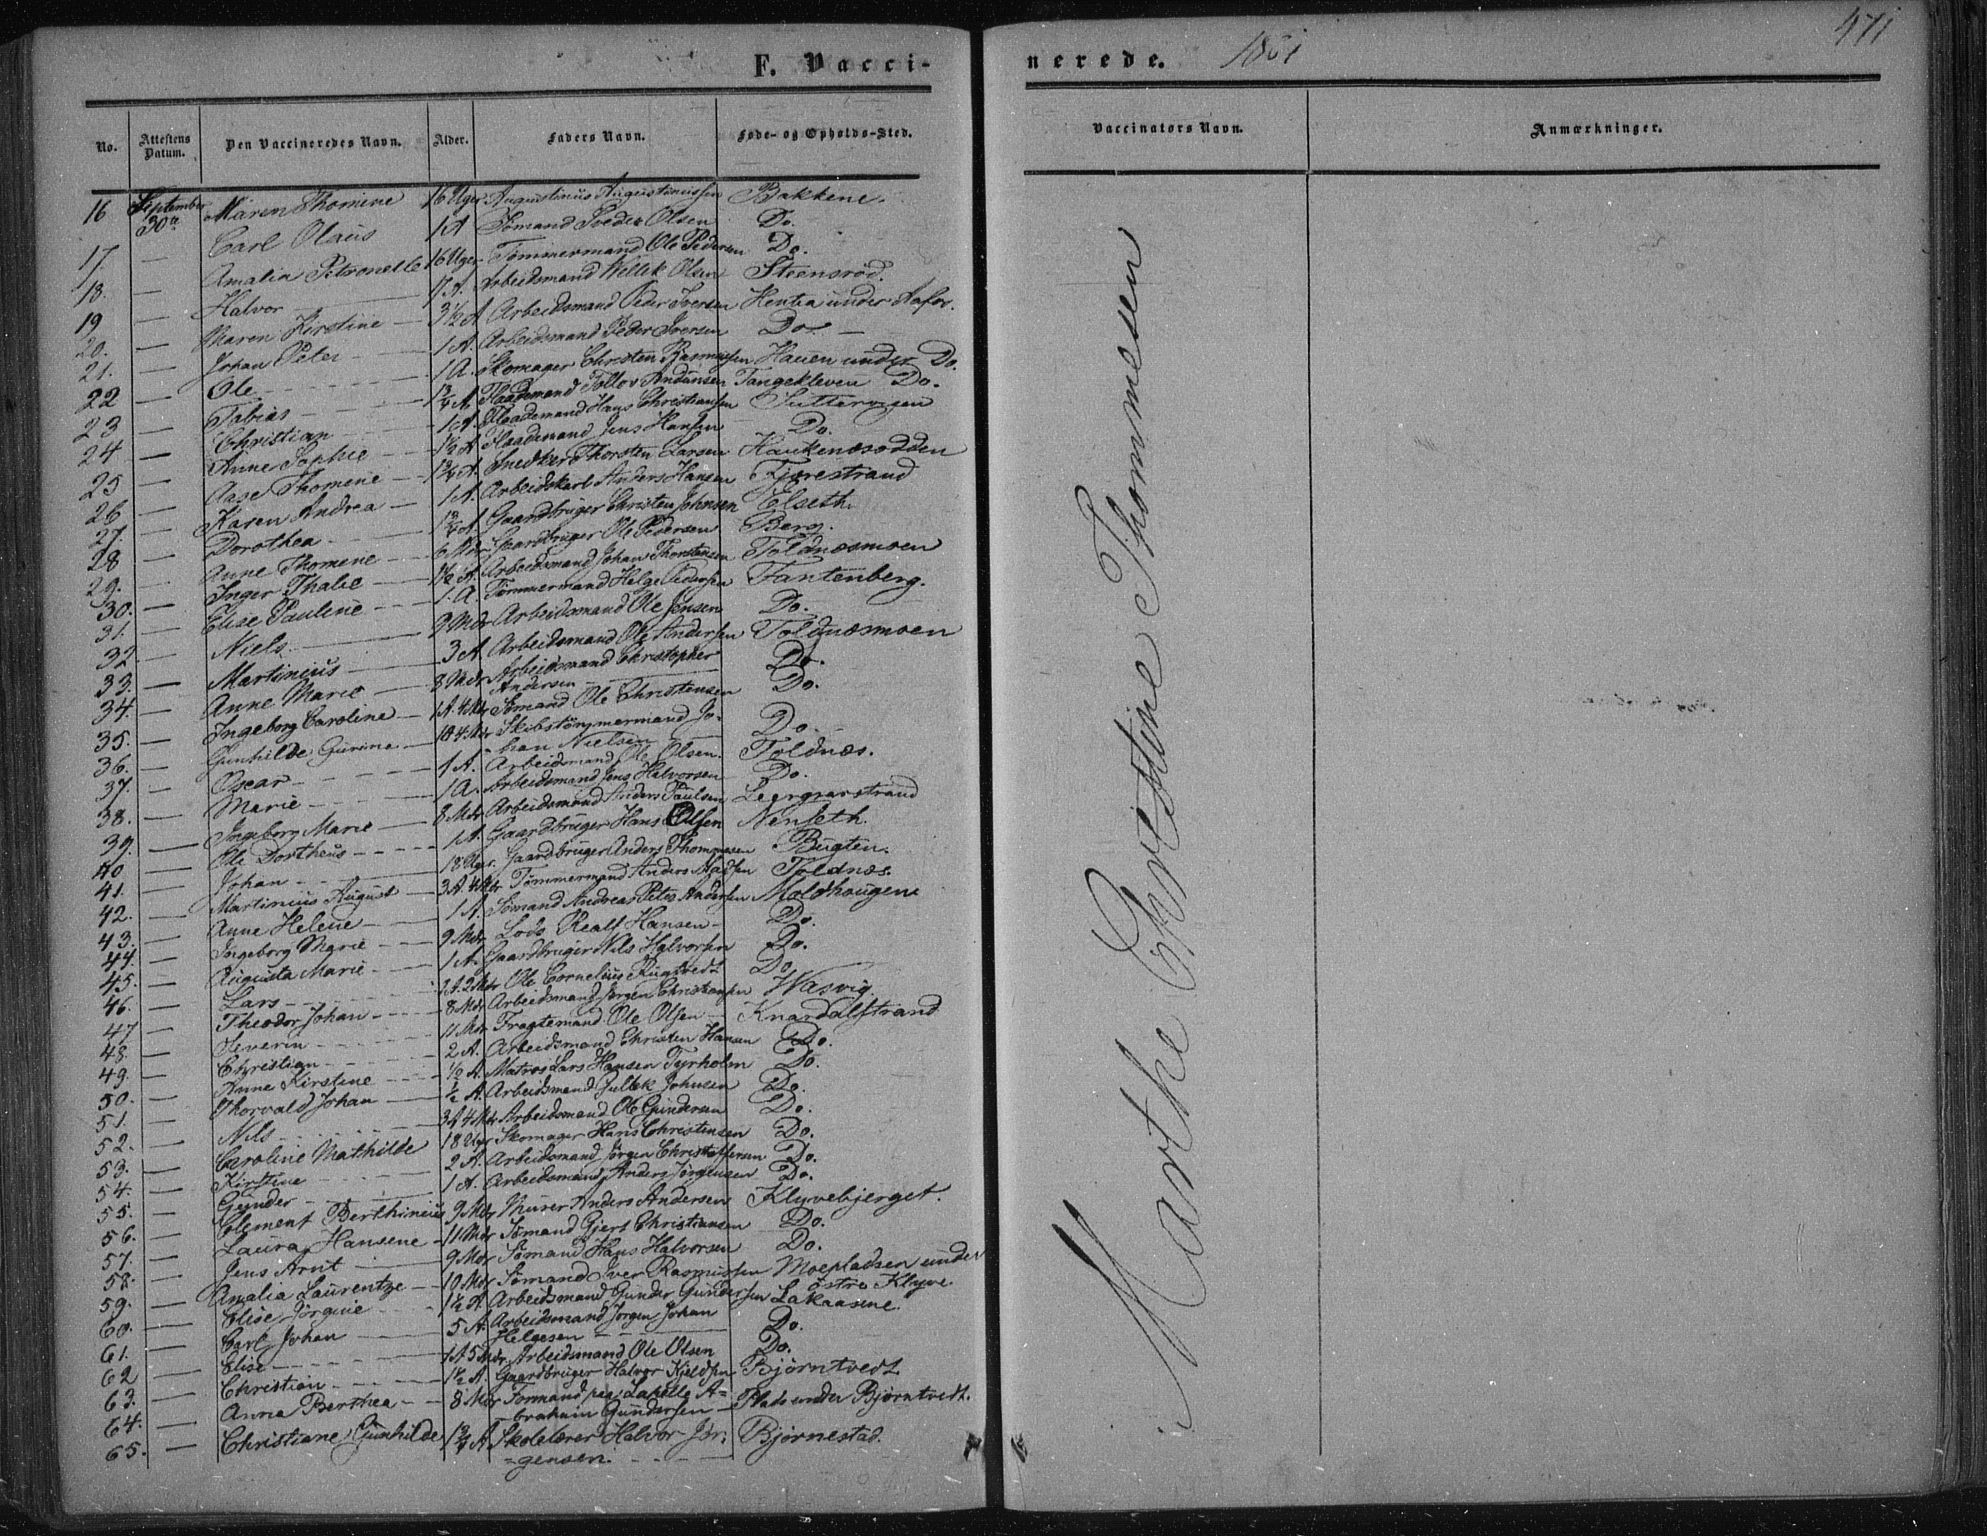 F. Vacci-
nerede. 1861
471
No. Attestens Datum. Den Vaccineredes Navn. Alder. Faders Navn. Føde- og Opholds-Sted. Vaccinators Navn. Anmærkninger.
16 September 30te Maren Thomine 16 Uger Augustinius Augustinussen Bakkene.
17 — Carl Olaus 1 A Sömand Peder Olsen Do.
18. — Amalia Petronelle 16 Uger Tömmermand Ole Pedersen Do.
19 — Halvor 1 A. Arbeidsmand Olsen Steensrød.
20. — Maren Kirstine 3½ A Arbeidsmand Peder Iversen under
21. — Johan Peter 1 A. Arbeidsmand Peder Iversen Do
22 — Ole 1 A. Skomager Christen Rasmussen Hauen under Do.
23 — Tobias 1¾ A Tangekleven Do.
24 — Christian 1 A. Hans Christiansen
25 — Anne Sophie 1½ A Jens Hansen Do.
26 — Aase Thomine 1¾ A. Snedker Thorsten Larsen Haukenæsodden
27. — Karen Andrea 1 A. Arbeidskarl Anders Hansen Fjærestrand
28 — Dorothea 1¾ A. Gaardbruger Christen Johnsen Elseth.
29. — Anne Thomene 6 Mdr Gaardbruger Ole Pedersen Berg.
30. — Inger Thalie 1½ A. Arbeidsmand Johan Thorstensen Toldnæsmoen
31. — Elise Pauline 1. A. Tömmermand Helge Pedersen Fantenberg.
32 — Niels 9 Mdr Arbeidsmand Ole Jensen Do.
33. — Martinius 3 A Arbeidsmand Ole Andersen Toldnæsmoen
34. — Anne Marie 8 Mdr Arbeidsmand Christopher Andersen Do.
35. — Ingeborg Caroline 1 A. 4 Mdr Sömand Ole Christensen Do.
36. — Gunhilde Gurine 4 Mdr Skibstömmermand Jo-
han Nielsen Do.
37. — Oscar 1 A. Arbeidsmand Ole Olsen. Toldnæs.
38. — Marie 1 A. Arbeidsmand Jens Halvorsen Do.
39. — Ingeborg Marie 8 Mdr Arbeidsmand Anders Paulsen
40 — Ole Dortheus 1 A. Gaardbruger Hans Olsen Nenseth.
41. — Johan 18 Uger. Gaardbruger Anders Thommesen Bugten.
42. — Martinius August 3 A 4 Mdr Tömmermand Anders Madsen Toldnæs.
43. — Anne Helene 1 A. Sömand Andreas Peter Andersen Moldhaugen
44. — Ingeborg Marie 9 Mdr Lods Realf Hansen Do.
45. — Augusta Marie 1 A. Gaardbruger Nils Halvorsen Do.
46. — Lars 2 Mdr Ole Cornelius Rugtvedt Do
47 — Theodor Johan 8 Mdr Arbeidsmand Jörgen Christiansen Wasvig
48. — Severin 11 Mdr Fragtemand Ole Olsen Knardalstrand
49. — Christian 2 A. Arbeidsmand Christen Hansen Do.
50. — Anne Kirstine ½ A. Matros Lars Hansen Tyrholm Do.
51. — Thorvald Johan ½ A. Arbeidsmand Gullek Johnsen Do.
52. — Nils 3 A 4 Mdr Arbeidsmand Ole Gundersen Do.
53. — Caroline Mathilde 18 Uger Skomager Hans Christensen Do.
54. — Kirstine 2 A. Arbeidsmand Jörgen Christoffersen Do.
55. — Gunder 1 A. Arbeidsmand Anders Jörgensen Do.
56. — Clement Berthinius 9 Mdr Murer Anders Andersen Klyvebjerget.
57. — Laura Hansene 11 Mdr Sömand Gjert Christiansen Do.
58. — Jens Arnt 9 Mdr Sömand Hans Halvorsen Do.
59. — Amalia Laurentze 10 Mdr Sömand Iver Rasmussen Moepladsen under
östre Klyve
60. — Elise Jörgine 1½ A Arbeidsmand Gunder Gundersen Lakaasene
61. — Carl Johan 5 A. Arbeidsmand Jörgen Johan
Helgesen Do.
62 — Elise 1 A 5 Mdr Arbeidsmand Ole Olsen Do.
63. — Christian 1½ A. Gaardbruger Halvor Kjeldsen Bjørntvedt
64. — Anna Berthea 8 Mdr Formand A-
braham Gundersen Plads under Bjørntvedt.
65. — Christiane Gunhilde 1¾ A Skolelærer Halvor Jör-
gensen. Bjørnestad.
Marthe Christine Thommesen